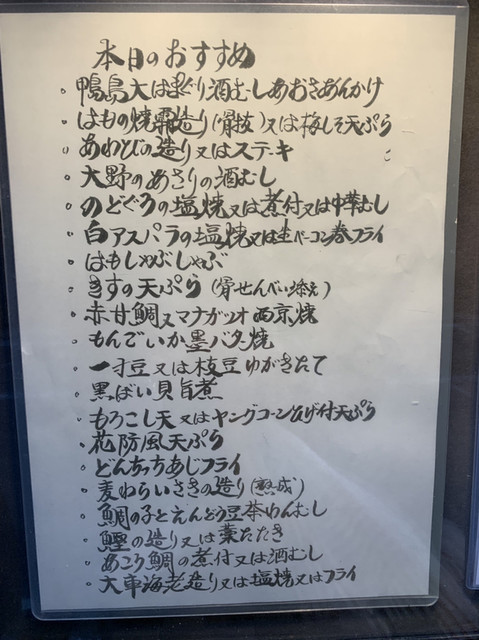 本日のおすすめ
・鴨島大はまぐり酒むしあおさあんかけ
・はもの焼霜造り(骨抜)又は梅しそ天ぷら
・あわびの造り又はステーキ
・大野のあさりの酒むし
・のどぐろの塩焼又は煮付又は中華むし
・白アスパラの塩焼又は生ベーコン春フライ
・はもしゃぶしゃぶ
・きすの天ぷら(骨せんべい添え)
・赤甘鯛又マナガツオ西京焼
・もんごいか墨バター焼
・一寸豆又は枝豆ゆがきたて
・黒っぽい貝旨煮
・もろこし天又はヤングコーンひげ付天ぷら
・花防風天ぷら
・どんちっちあじフライ
・麦わらいさきの造り(熟成)
・鯛の子とえんどう豆茶わんむし
・鰹の造り又は藁たたき
・あこう鯛の煮付又は酒むし
・大車海老造り又は塩焼又はフライ